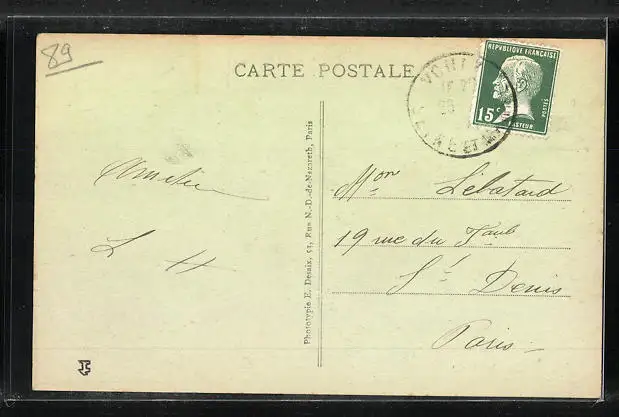 89
CARTE POSTALE
RÉPUBLIQUE FRANÇAISE
15c
POSTES
PASTEUR
Amitiés
L H
Phototypie E. Desaix, 51, Rue N.-D.-de-Nazareth, Paris
Mon Lebatard
19 rue du Faub
St Denis
Paris